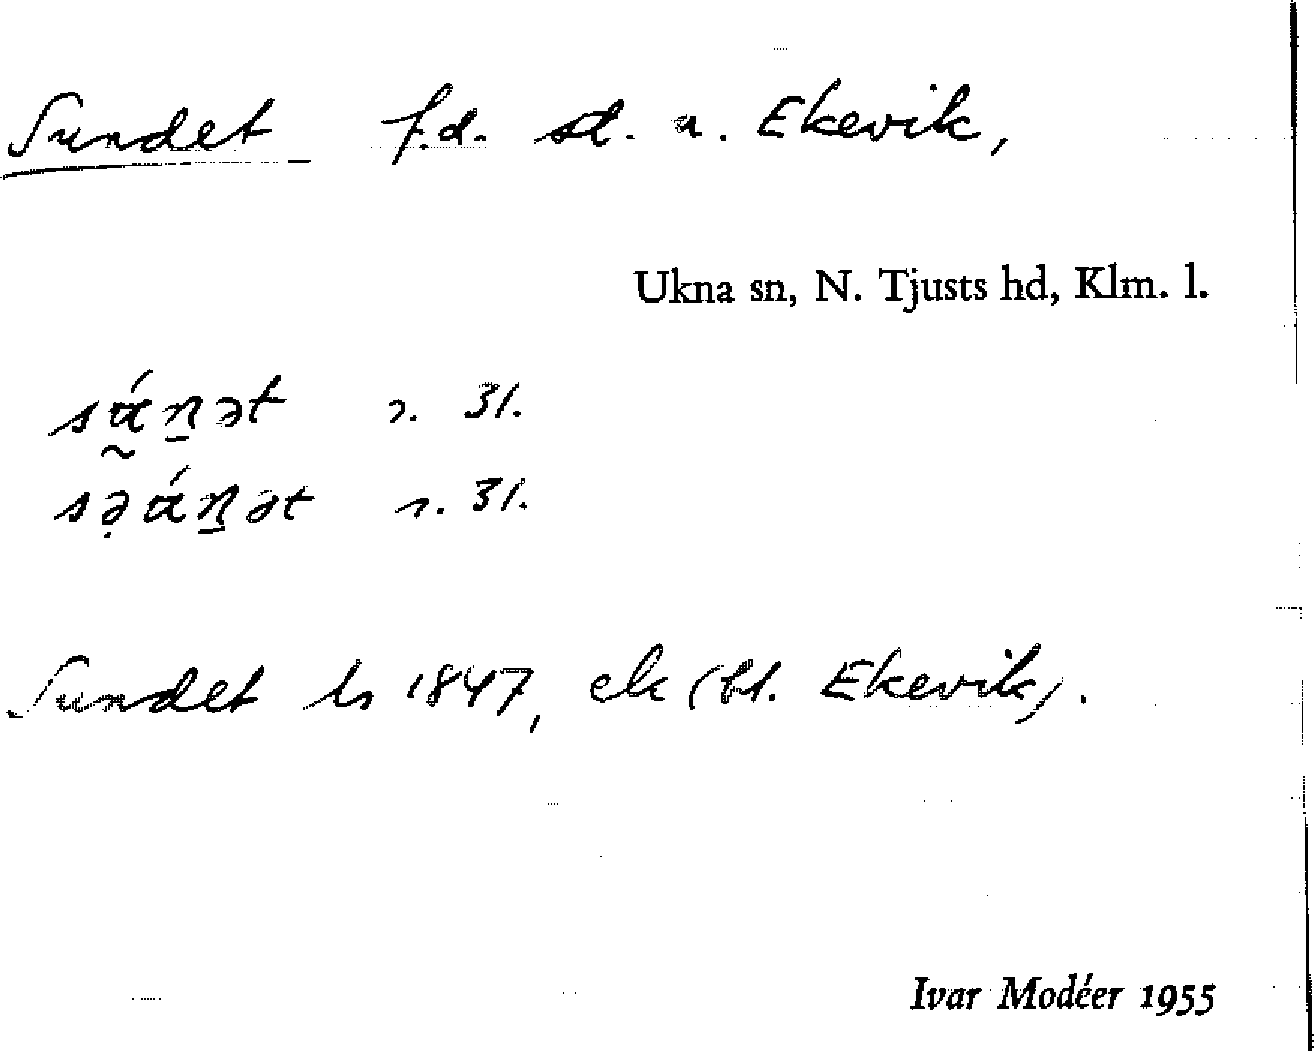 Sundet f.d. st. u. Ekevik,
Ukna sn, N. Tjusts hd, Klm. l.
31.
31.
Sundet hs 1847, ek (bl. Ekevik).
Ivar Modéer 1955